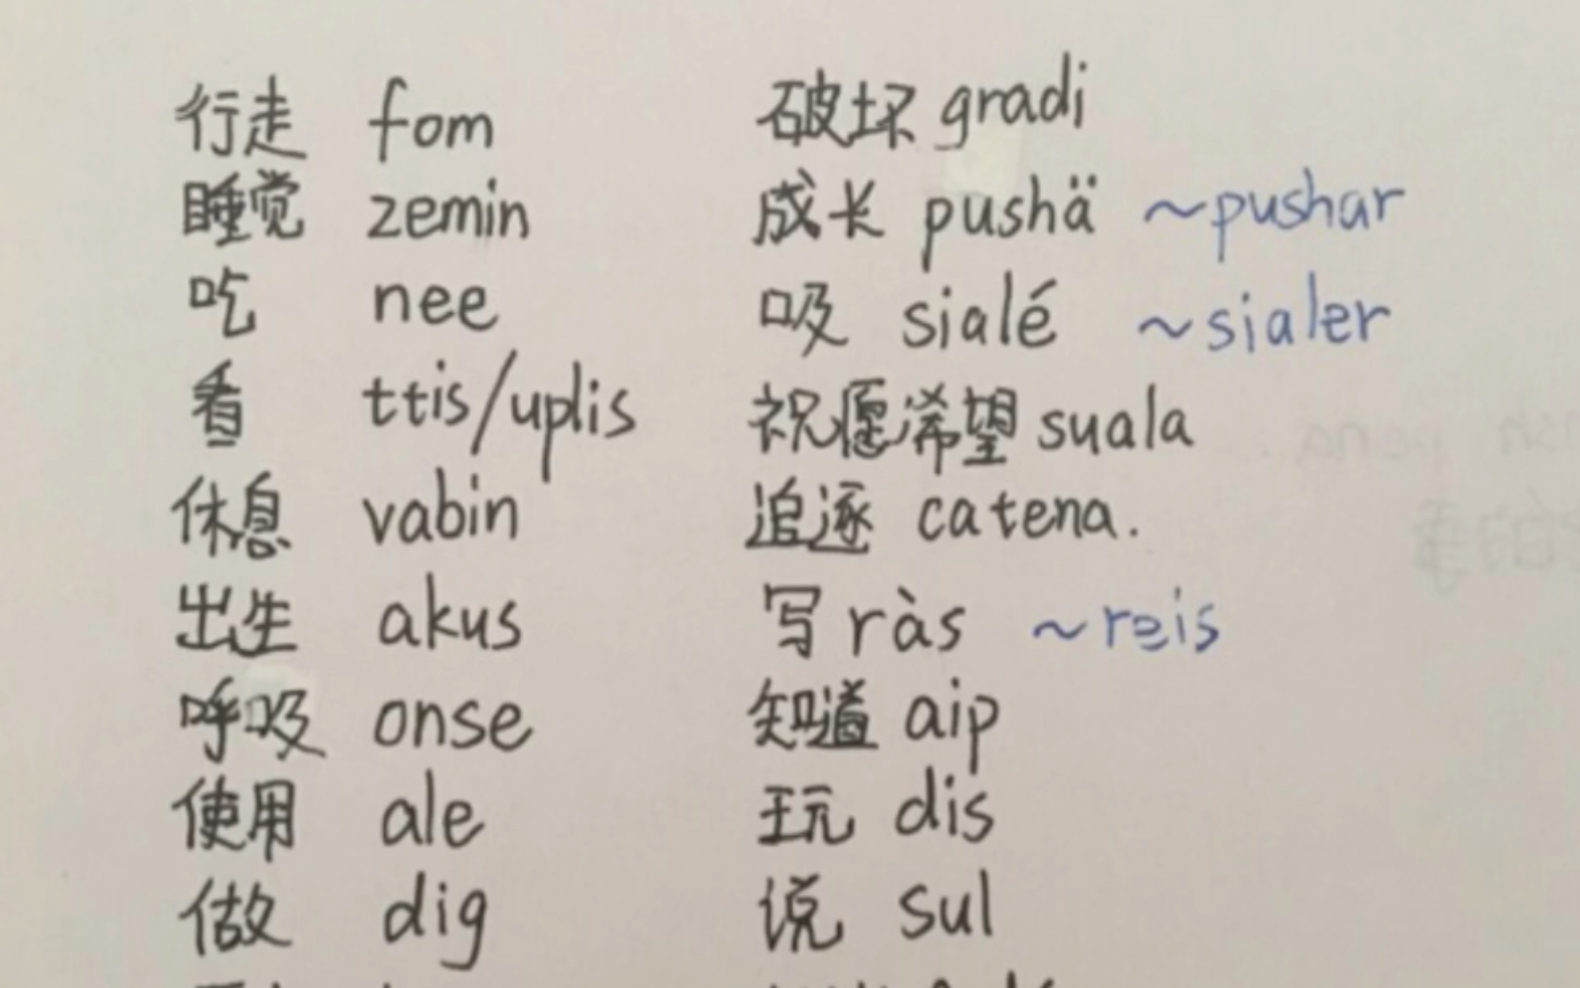 行走 fom
睡觉 zemin
吃 nee
看 ttis/uplis
休息 vabin
出生 akus
呼吸 onse
使用 ale
做 dig
破坏 gradi
成长 pushä ~pushar
吸 sialé ~sialer
祝愿希望 suala
追逐 catena.
写 ràs ~reis
知道 aip
玩 dis
说 sul